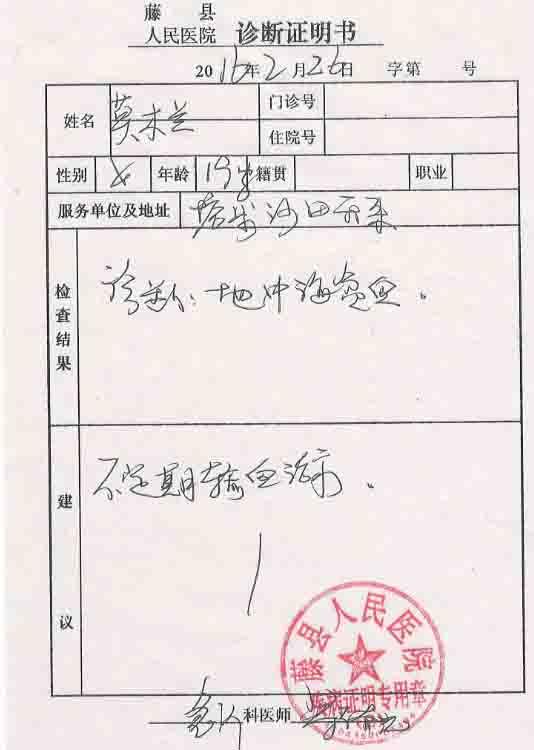 藤县
人民医院 诊断证明书
2016年2月26日 字第 号
姓名 莫木兰 门诊号
住院号
性别 女 年龄 19岁 籍贯 职业
服务单位及地址
检查结果
诊断：地中海贫血。
建议
不定期输血治疗。
藤县人民医院
疾病证明专用章
急诊科医师